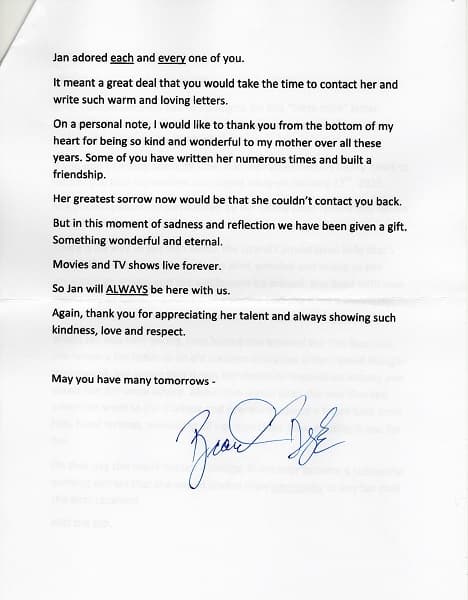 Jan adored each and every one of you.
It meant a great deal that you would take the time to contact her and
write such warm and loving letters.
On a personal note, I would like to thank you from the bottom of my
heart for being so kind and wonderful to my mother over all these
years. Some of you have written her numerous times and built a
friendship.
Her greatest sorrow now would be that she couldn't contact you back.
But in this moment of sadness and reflection we have been given a gift.
Something wonderful and eternal.
Movies and TV shows live forever.
So Jan will ALWAYS be here with us.
Again, thank you for appreciating her talent and always showing such
kindness, love and respect.
May you have many tomorrows -